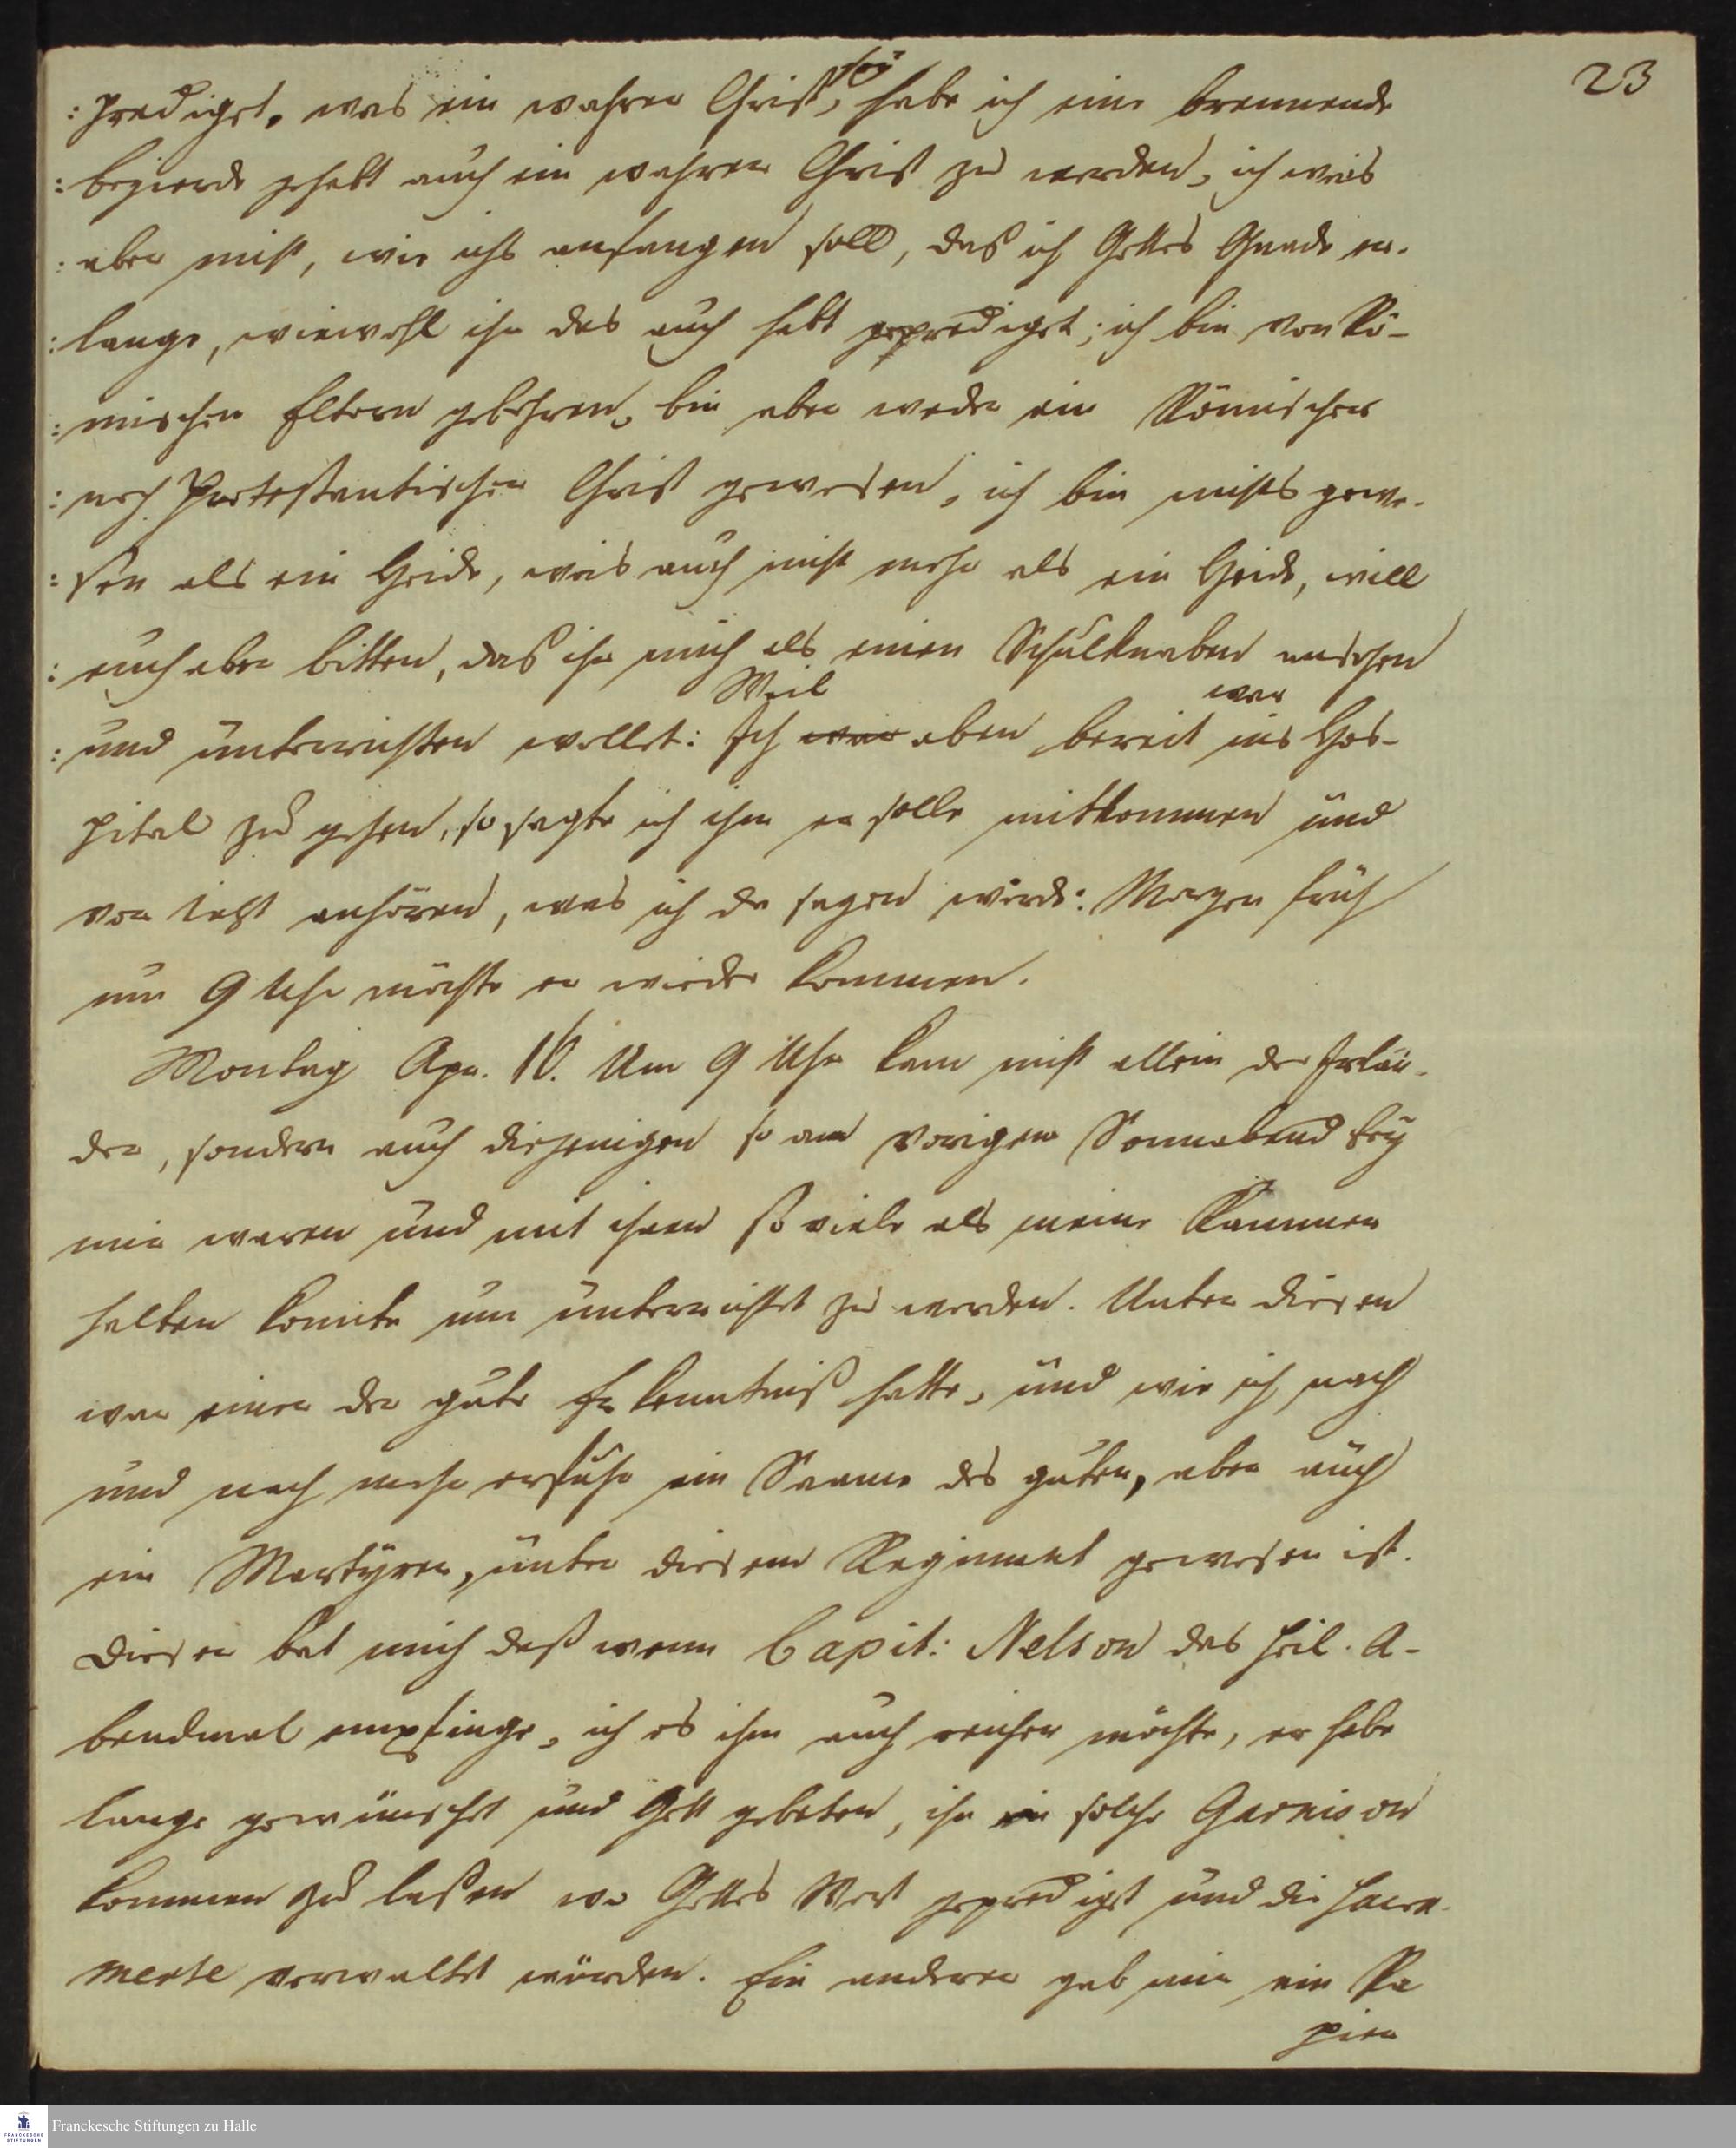 23
: prediget, was ein wahrer Christ sey, habe ich eine brennende
: begierde gehabt auch ein wahrer Christ zu werden, ich weis
: aber nicht, wie ichs anfangen soll, daß ich Gottes Gnade er-
: lange, wiewohl ihr das auch habt geprediget; ich bin von Rö-
: mischen Eltern gebohren, bin aber weder ein Römischer
: noch Protestantischer Christ gewesen, ich bin nichts gewe-
: sen als ein Heide, weis auch nicht mehr als ein Heide, will
: euch aber bitten, daß ihr mich als einen Schulknaben ansehen
: und unterrichten wollet: Weil Ich war eben bereit war ins Hos-
pital zu gehen, so sagte ich ihm er solle mitkommen und
vor iezt anhören, was ich da sagen würde: Morgen früh
um 9 Uhr möchte er wieder kommen.
Montag Apr. 16. Um 9 Uhr kam nicht allein der Irlän-
der, sondern auch diejenigen so am vorigen Sonnabend bey
mir waren und mit ihnen so viele als meine Kammer
halten konnte um unterrichtet zu werden. Unter diesen
war einer der gute Erkenntniß hatte, und wie ich nach
und nach mehr erfuhr ein Saame des guten, aber auch
ein Martyrer, unter diesem Regiment gewesen ist.
Dieser bat mich daß wenn Capit: Nelson das heil. A-
bendmal empfinge, ich es ihm auch reichen möchte, er habe
lange gewünschet und Gott gebeten, ihn in solche Garnison
kommen zu laßen wo Gottes Wort geprediget und die Sacra-
mente verwaltet würden. Ein anderer gab mir ein Pa
pier
Franckesche Stiftungen zu Halle
FRANCKESCHE
STIFTUNGEN